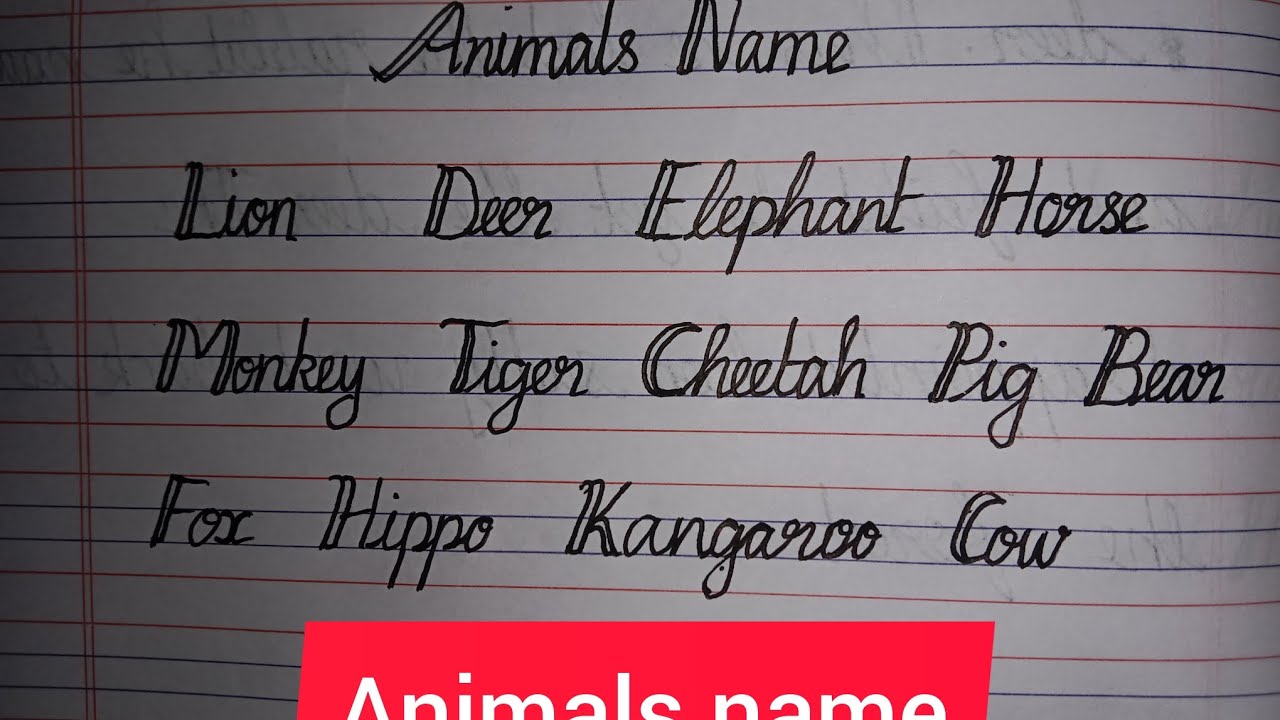 Animals Name
Lion Deer Elephant Horse
Monkey Tiger Cheetah Pig Bear
Fox Hippo Kangaroo Cow
Animals name